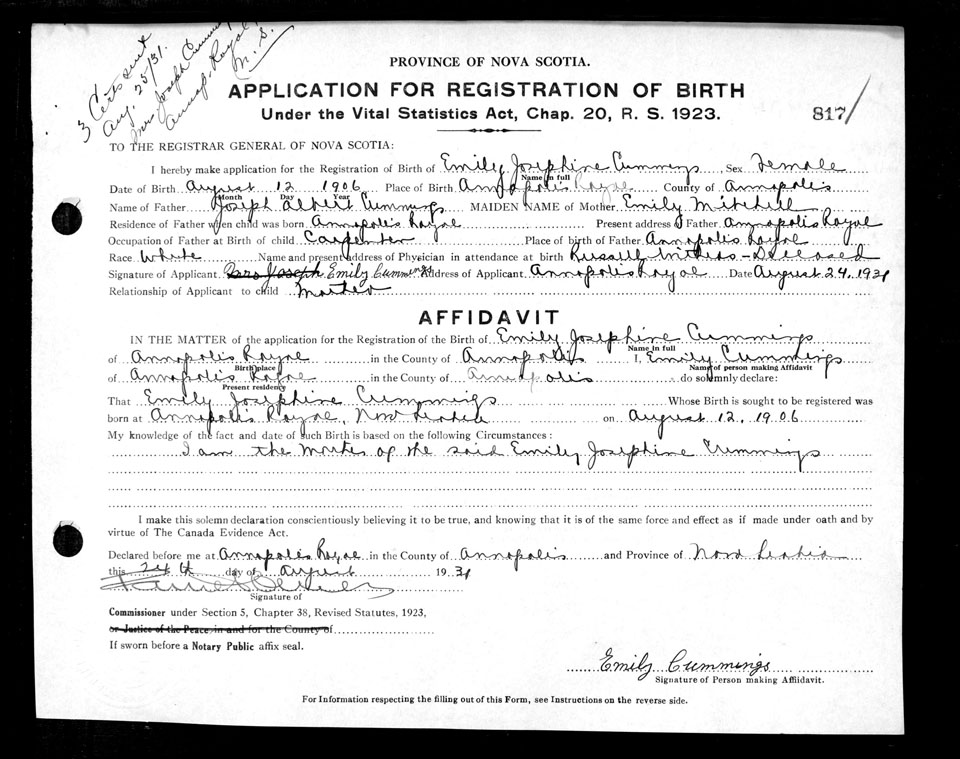 3 Certs sent
Aug. 25/31.
Mrs Joseph Cummings
Annap. Royal
N. S.
PROVINCE OF NOVA SCOTIA.
APPLICATION FOR REGISTRATION OF BIRTH
Under the Vital Statistics Act, Chap. 20, R. S. 1923.
817/
TO THE REGISTRAR GENERAL OF NOVA SCOTIA:
I hereby make application for the Registration of Birth of Emily Josephine Cummings Sex Female
Name in full
Date of Birth August 12 1906 Place of Birth Annapolis Royal County of Annapolis
Month Day Year
Name of Father Joseph Albert Cummings MAIDEN NAME of Mother Emily Mitchell
Residence of Father when child was born Annapolis Royal Present address of Father Annapolis Royal
Occupation of Father at Birth of child Carpenter Place of birth of Father Annapolis Royal
Race White Name and present address of Physician in attendance at birth - Deceased
Signature of Applicant Mrs Joseph Emily Cummings Address of Applicant Annapolis Royal Date August 24, 1931
Relationship of Applicant to child Mother
AFFIDAVIT
IN THE MATTER of the application for the Registration of the Birth of Emily Josephine Cummings
Name in full
of Annapolis Royal in the County of Annapolis I, Emily Cummings
Birth place Name of person making Affidavit
of Annapolis Royal in the County of Annapolis do solemnly declare:
Present residence
That Emily Josephine Cummings Whose Birth is sought to be registered was
born at Annapolis Royal, Nova Scotia on August 12, 1906
My knowledge of the fact and date of such Birth is based on the following Circumstances:
I am the Mother of the said Emily Josephine Cummings
I make this solemn declaration conscientiously believing it to be true, and knowing that it is of the same force and effect as if made under oath and by
virtue of The Canada Evidence Act.
Declared before me at Annapolis Royal in the County of Annapolis and Province of Nova Scotia
this 24th day of August 1931
Signature of
Commissioner under Section 5, Chapter 38, Revised Statutes, 1923,
or Justice of the Peace in and for the County of
If sworn before a Notary Public affix seal.
Emily Cummings
Signature of Person making Affidavit.
For Information respecting the filling out of this Form, see Instructions on the reverse side.